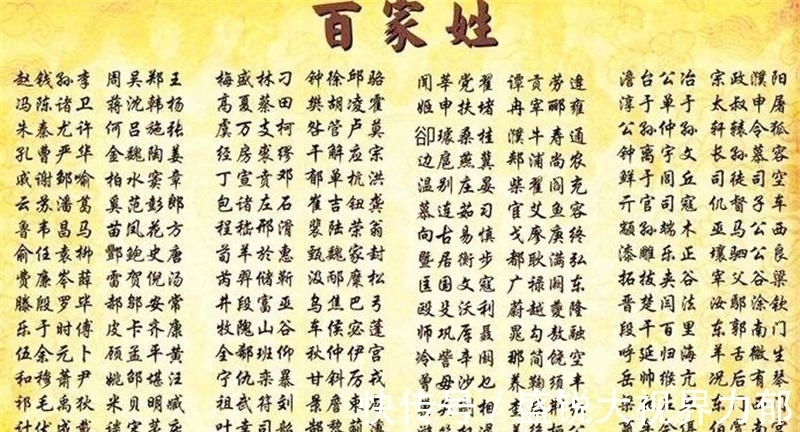 百家姓
赵钱孙李 周吴郑王 梅盛林刁 钟徐邱骆 闻莘党翟 谭贡劳逄 澹台公冶 宗政濮阳
冯陈诸卫 蒋沈韩杨 高夏蔡田 樊胡凌霍 姬申扶堵 冉宰郦雍 淳于单于 太叔申屠
朱秦尤许 何吕施张 虞万支柯 昝管卢莫 郤璩桑桂 濮牛寿通 公孙仲孙 轩辕令狐
孔曹严华 金魏陶姜 经房裘缪 干解应宗 边扈燕冀 郏浦尚农 钟离宇文 长孙慕容
戚谢邹喻 柏水窦章 丁宣贲邓 郁单杭洪 温别庄晏 柴瞿阎充 鲜于闾丘 司徒司空
云苏潘葛 奚范彭郎 包诸左石 崔吉钮龚 慕连茹习 宦艾鱼容 亓官司寇 仉督子车
鲁韦昌马 苗凤花方 程嵇邢滑 裴陆荣翁 向古易慎 戈廖庾终 颛孙端木 巫马公西
俞任袁柳 酆鲍史唐 荀羊於惠 甄魏家封 暨居衡步 都耿满弘 漆雕乐正 壤驷公良
费廉岑薛 雷贺倪汤 芮羿储靳 汲邴糜松 匡国文寇 广禄阙东 拓拔夹谷 宰父谷梁
滕殷罗毕 郝邬安常 井段富巫 乌焦巴弓 殴殳沃利 蔚越夔隆 晋楚闫法 汝鄢涂钦
乐于时傅 皮卡齐康 牧隗山谷 车侯宓蓬 师巩厍聂 晁勾敖融 段干百里 东郭南门
伍余元卜 顾孟平黄 全郗班仰 秋仲伊宫 冷訾辛阚 那简饶空 呼延归海 羊舌微生
和穆萧尹 姚邵堪汪 宁仇栾暴 甘斜厉戎 曾毋沙也 养鞠须丰 岳帅缑亢 况后有琴
祁毛禹狄 米贝明臧 祖武符刘 景詹束